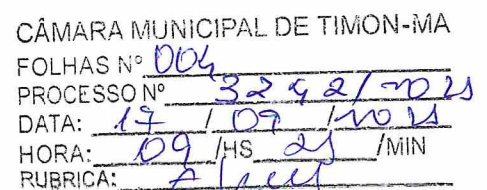 CÂMARA MUNICIPAL DE TIMON-MA
FOLHAS Nº 004
PROCESSO Nº 3242/2025
DATA: 17 / 09 / 2025
HORA: 09 /HS 25 /MIN
RUBRICA: